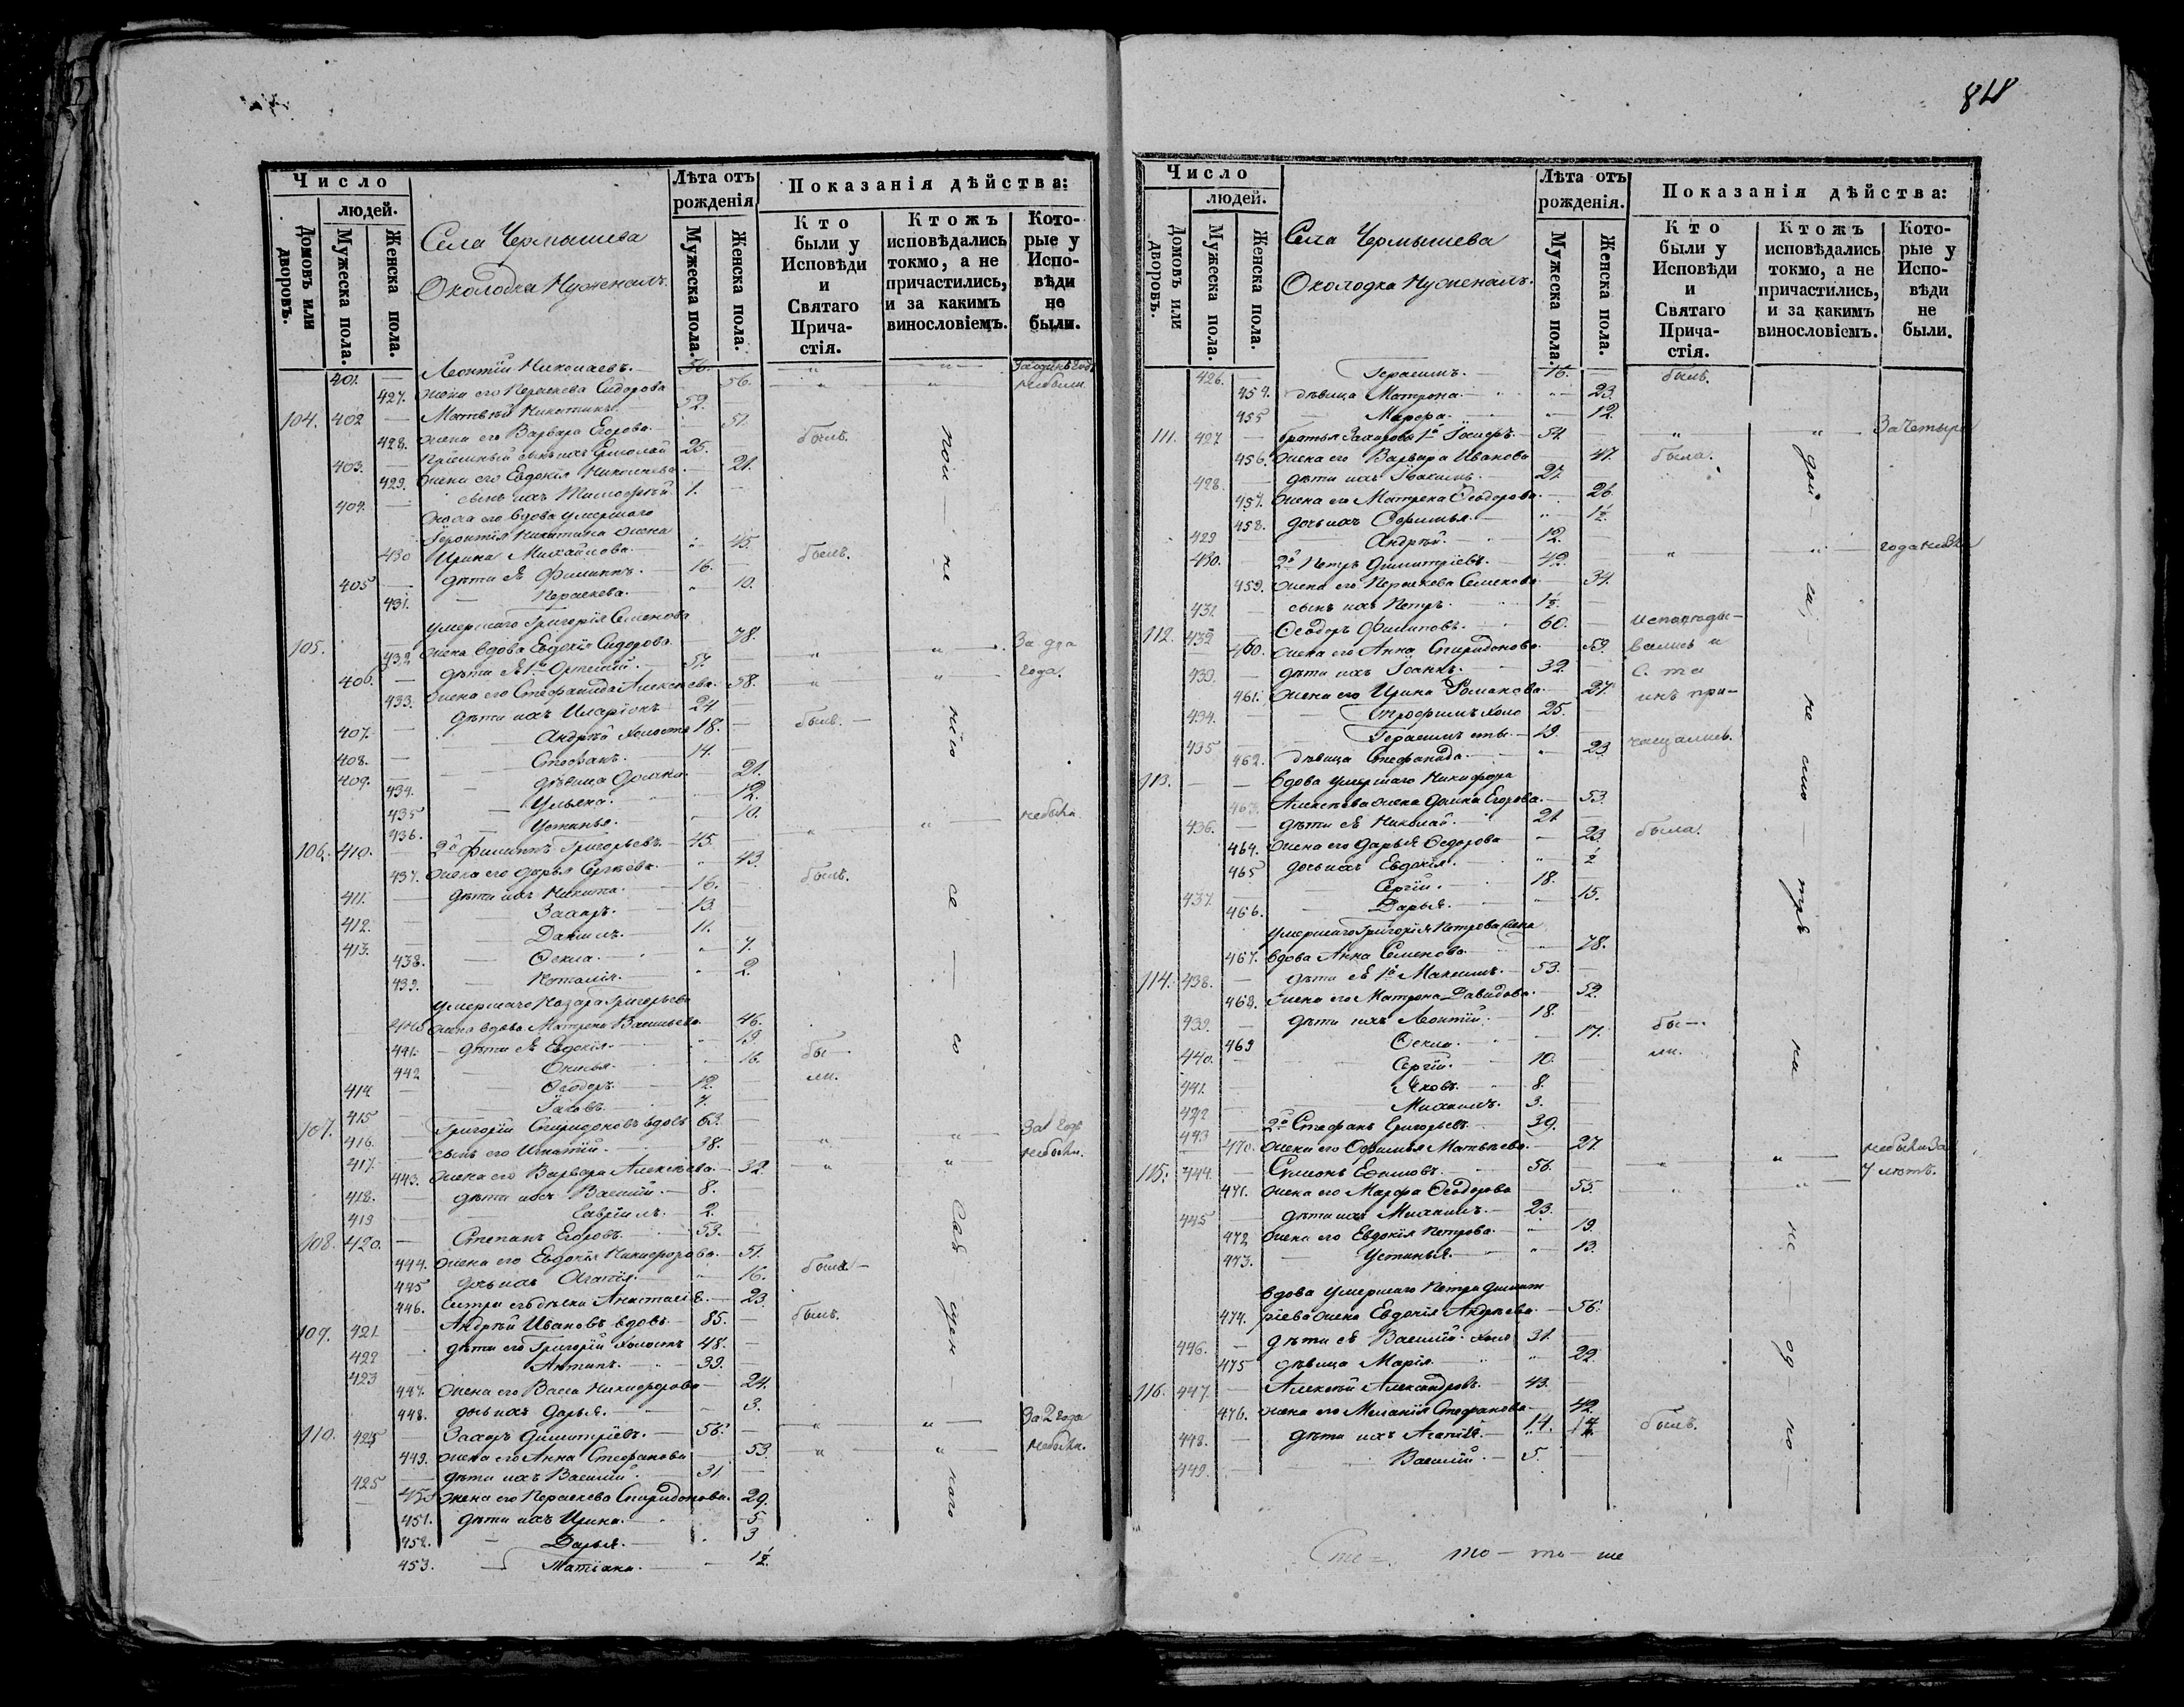 Число
людей.
Домовъ или дворовъ.
Мужеска пола.
Женска пола.
Села Чермышева
Околодка Нуженалъ.
Лѣта отъ рожденія
Мужеска пола.
Женска пола.
Показанія дѣйства:
Кто были у Исповѣди и Святаго Прича-стія.
Ктожъ исповѣдались токмо, а не причастились, и за какимъ винословіемъ.
Кото-рые у Испо-вѣди не были.
401. — Леонтій Николаевъ. — 56. — " — " —
427. жена его Параскева Сидорова 56. " " небыли
104. 402 — Матвѣй Никитинъ. — 52.
428. жена его Варвара Егорова. — 51.
403. — пріемный сынъ ихъ Ермолай 25. былъ.
429. жена его Евдокія Николаева. — 21.
404. — сынъ ихъ Тимофѣй. 1. —
сноха его вдова умершаго
Геронтія Никитина жена
430 Ирина Михайлова. — " 45.
405 — дѣти ея Филиппъ. — 16. — былъ.
431. — Параскева. — " 10.
умершаго Григорія Семенова
105. 432 жена вдова Евдокія Сидорова. — 78. " " За два
406. — дѣти ея 1й Артемій. — 57. — " " года.
433. жена его Стефанида Алексѣева. 58.
407. — дѣти ихъ Иларіонъ 24 — былъ. —
408. — Андрѣй холостъ 18. —
409. — Стефанъ. — 14. —
434. — дѣвица Домна. 21.
435 — Ульяна. — 12.
436. — Устинья. — " 10.
106. 410. — 2й Филиппъ Григорьевъ. — 45. " " — небыли.
437. жена его Дарья Сергѣева. — " 43.
411. — дѣти ихъ Никита. — 16. — былъ.
412. — Захаръ. — 13.
413. — Данилъ. — 11.
438. — Ѳекла. — " 7.
439. — Наталія. — " 2.
умершаго Назара Григорьева
440 жена вдова Матрена Васильева. 46.
441. — дѣти ея Евдокія. — " 19. бы —
442 — Окилья. — " 16. ли.
414 — Ѳеодоръ. — 12. —
415 — Іаковъ. 7. —
107. 416. — Григорій Спиридоновъ вдовъ 63. — " " За 1 годъ
417. — сынъ его Игнатій. — 38. — " " небыли.
443. жена его Варвара Алексѣева. — 32
418. — дѣти ихъ Василій. — 8.
419 — Гавріилъ. — 2.
108. 420. — Степанъ Егоровъ. — 53. —
444. жена его Евдокія Никифорова. 51.
445 дочь ихъ Агапія. — " 16. была. —
446. сестра его дѣвка Анастасія. — 23
109. 421 — Андрѣй Ивановъ вдовъ — 85. — былъ.
422 — дѣти его Григорій холостъ 48. —
423 — Антипъ. — 39. —
447. жена его Васса Никифорова — 24.
448. дочь ихъ Дарья. — " 3.
110. 424 — Захаръ Димитріевъ. — 56. — " " — За 2 года
449. жена его Анна Стефанова — 53. — " " — небыли.
425 — дѣти ихъ Василій. — 31 —
450 жена его Параскева Спиридонова. 29.
451. дѣти ихъ Ирина. — 5
452. — Дарья. — " 3
453. — Татіана. — " 1½.
пои — не — нію — се — со — Свя — щен — наго

84
Число
людей.
Домовъ или дворовъ.
Мужеска пола.
Женска пола.
Села Чермышева
Околодка Нуженалъ.
Лѣта отъ рожденія.
Мужеска пола.
Женска пола.
Показанія дѣйства:
Кто были у Исповѣди и Святаго Прича-стія.
Ктожъ исповѣдались токмо, а не причастились, и за какимъ винословіемъ.
Кото-рые у Испо-вѣди не были.
426. — Герасимъ. — 16. — былъ.
454. дѣвица Матрона. — " 23.
455 — Марфа. — " 12.
111. 427 — братья Захаровы 1й Іосифъ. — 54. — " " За четыре
456. жена его Варвара Иванова — 47. была.
428. — дѣти ихъ Іоакимъ. — 27. —
457. жена его Матрена Ѳеодорова. — 26.
458. дочь ихъ Софилья. — " 1½.
429 — Андрѣй. — 12. —
430. — 2й Петръ Димитріевъ. — 42. — " "
459. жена его Параскева Семенова — 34.
431. сынъ ихъ Петръ. — 1½. —
112. 432 — Ѳеодоръ Филиповъ. — 60. — исповѣды-
460. жена его Анна Спиридонова. 59. вались и
433. — дѣти ихъ Іоаннъ. — 32. — С. та
461. жена его Ирина Романова. — 27. инъ при-
434. — Трофимъ холо 25.
435 — Герасимъ сты. — 19. — чащались.
462. дѣвица Стефанида. — " 23
113. — — вдова умершаго Никифора
463. Алексѣева жена Домна Егорова. — 53.
436. — дѣти ея Николай. 21 —
464. жена его Дарья Ѳеодорова — 23. была.
465 дочь ихъ Евдокія. — " ½
437. — Сергій. — 18. —
466. — Дарья. — 15.
умершаго Григорія Петрова жена
467. вдова Анна Семенова. — " 78.
114. 438. — дѣти ея 1й Максимъ. — 53. —
468. жена его Матрона Давидова. — 52.
439. — дѣти ихъ Леонтій. — 18. —
469 Ѳекла. — " 17. бы —
440. — Сергій. — 10. — ли.
441. Яковъ. — 8.
442 — Михаилъ. 3. —
443 — 2й Стефанъ Григорьевъ. — 39. —
470. жена его Офимья Матвѣева. — 27.
115. 444. — Симонъ Ефимовъ. — 56. — " " — небыли за
471. жена его Марфа Ѳеодорова — 55 — " " — 7 лѣтъ.
445 — дѣти ихъ Михаилъ. — 23. —
472 жена его Евдокія Петрова. — " 19.
473. — Устинья. — " 13.
вдова умершаго Петра Димит
474. ріева жена Евдокія Андрѣева. — 56.
446. — дѣти ея Василій холо 31. —
475 дѣвица Марія. — " 22
116. 447. — Алексѣй Александровъ. — 43. —
476. жена его Меланія Стефанова — 42.
448. — дѣти ихъ Агапій. — 14. былъ.
449. — Василій. — 5. —
дой — са, — не — смо — трѣ — на — не — од — но —
то — то — ше